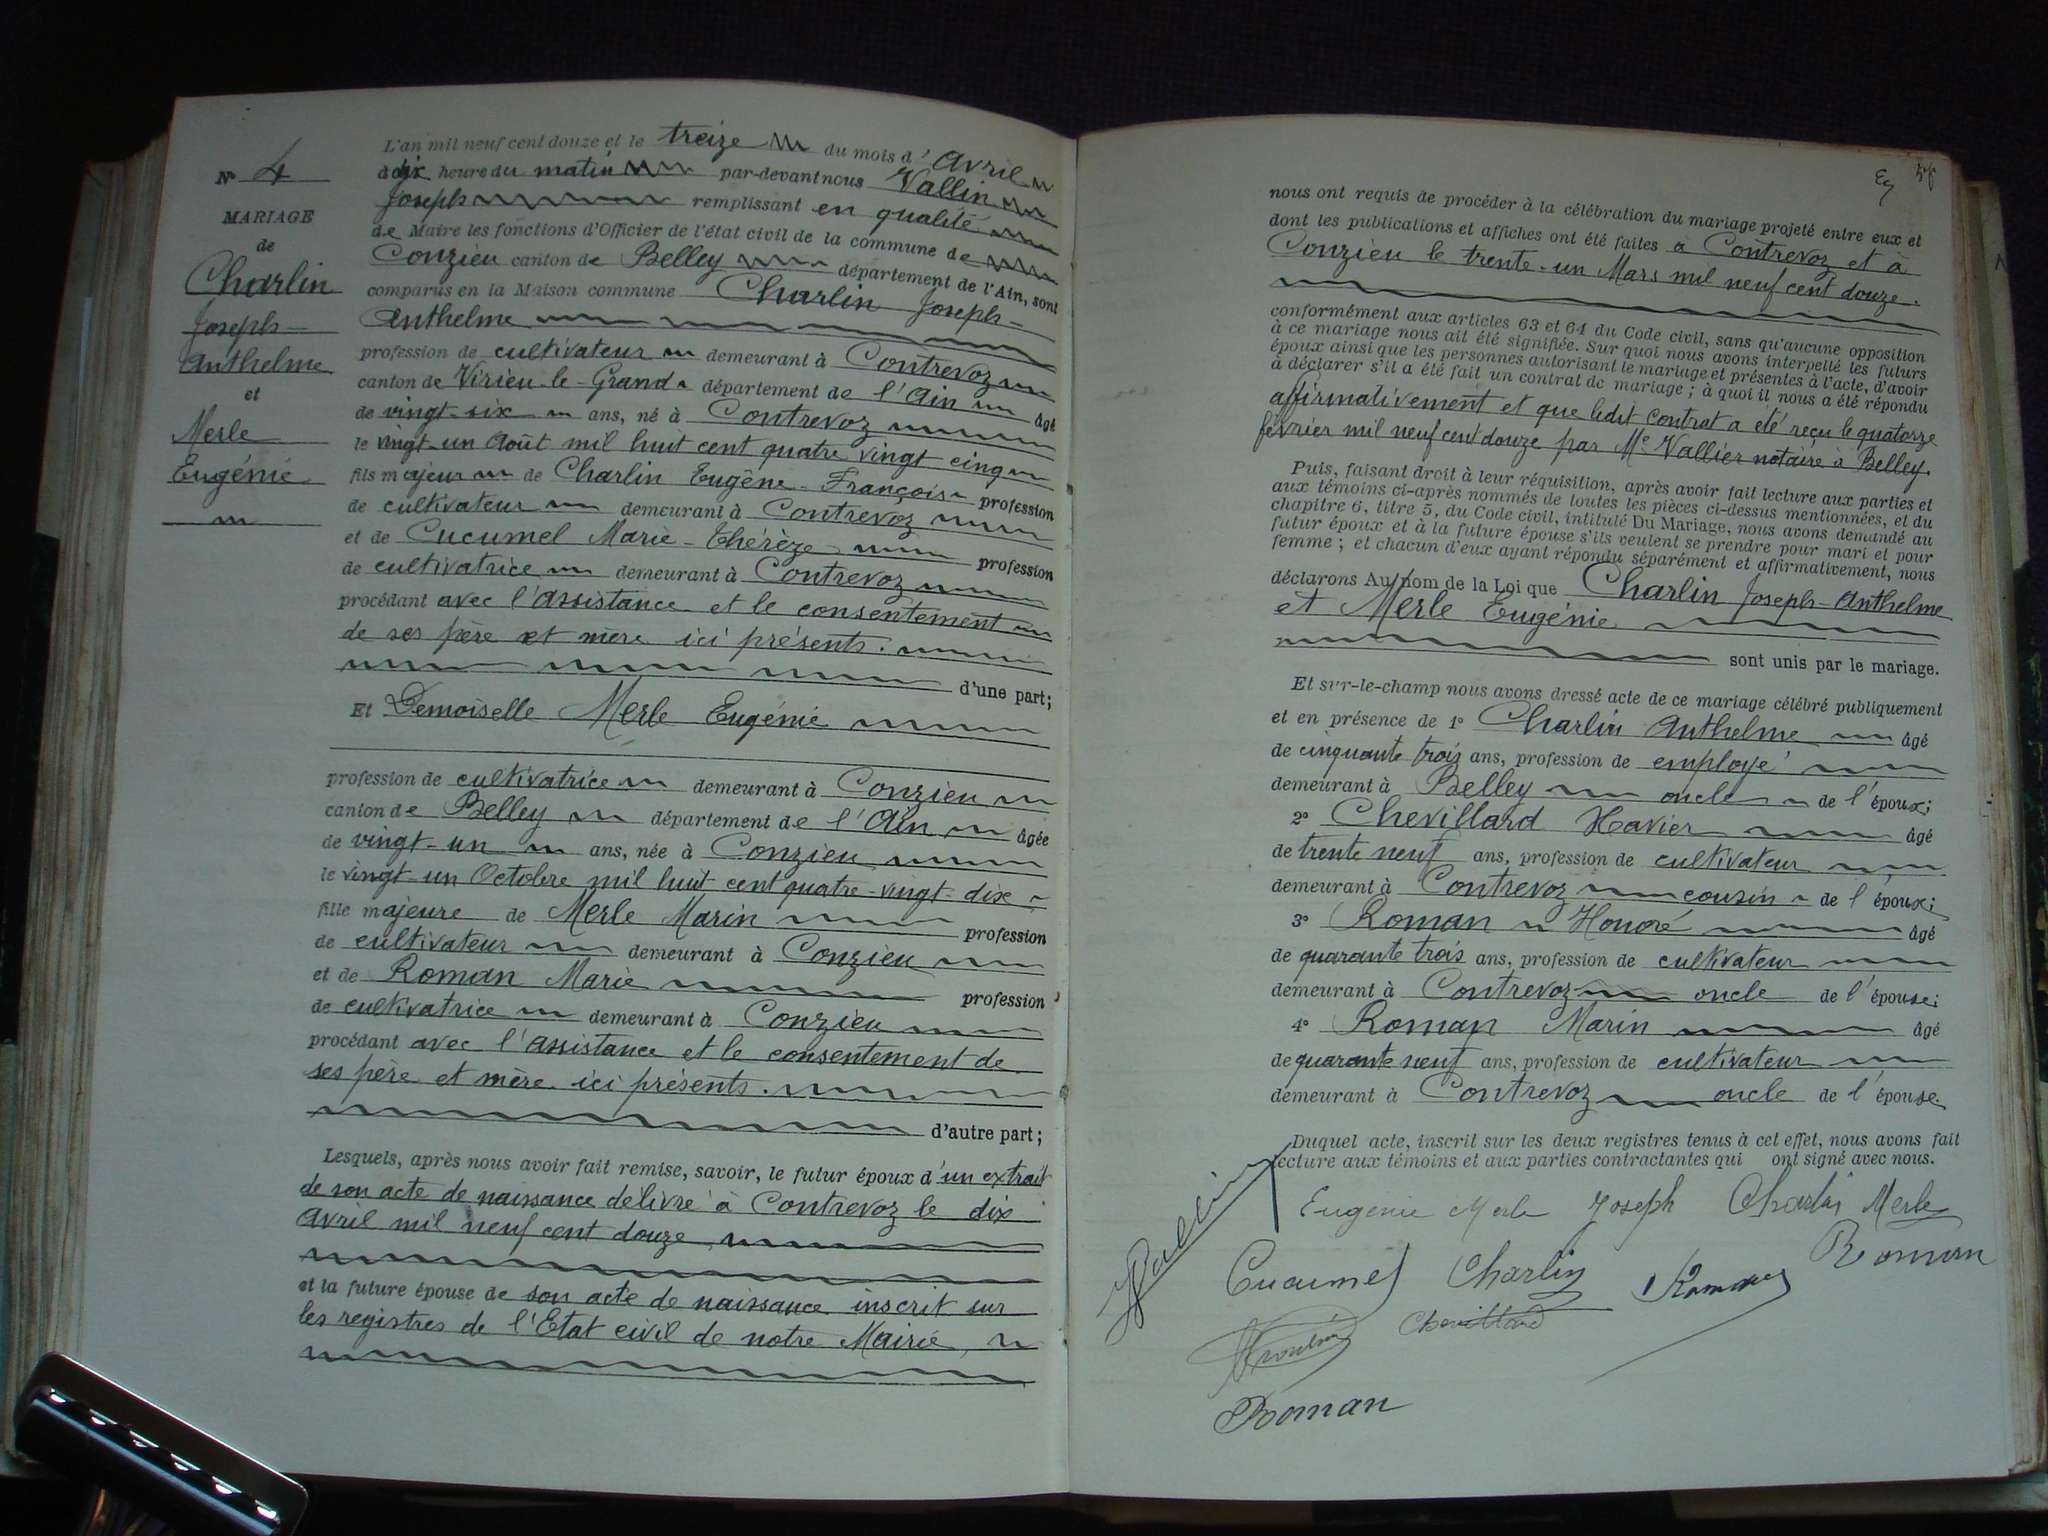 N° 4
MARIAGE
de
Charlin
Joseph-
Anthelme
et
Merle
Eugénie
L'an mil neuf cent douze et le treize du mois d' Avril
à dix heure du matin par-devant nous Vallin
Joseph remplissant en qualité
de Maire les fonctions d'Officier de l'état civil de la commune de
Conzieu canton de Belley département de l'Ain, sont
comparus en la Maison commune Charlin Joseph-
Anthelme
profession de cultivateur demeurant à Contrevoz
canton de Virieu-le-Grand département de l'Ain âgé
de vingt-six ans, né à Contrevoz
le vingt-un Août mil huit cent quatre vingt cinq
fils majeur de Charlin Eugène-François profession
de cultivateur demeurant à Contrevoz
et de Cucumel Marie-Thérèze profession
de cultivatrice demeurant à Contrevoz
procédant avec l'assistance et le consentement
de ses père et mère ici présents.
d'une part;
Et Demoiselle Merle Eugénie
profession de cultivatrice demeurant à Conzieu
canton de Belley département de l'Ain âgée
de vingt-un ans, née à Conzieu
le vingt-un Octobre mil huit cent quatre-vingt-dix
fille majeure de Merle Marin profession
de cultivateur demeurant à Conzieu
et de Roman Marie profession
de cultivatrice demeurant à Conzieu
procédant avec l'assistance et le consentement de
ses père et mère ici présents.
d'autre part;
Lesquels, après nous avoir fait remise, savoir, le futur époux d'un extrait
de son acte de naissance délivré à Contrevoz le dix
Avril mil neuf cent douze
et la future épouse de son acte de naissance inscrit sur
les registres de l'Etat civil de notre Mairie,
nous ont requis de procéder à la célébration du mariage projeté entre eux et
dont les publications et affiches ont été faites à Contrevoz et à
Conzieu le trente-un Mars mil neuf cent douze.
conformément aux articles 63 et 64 du Code civil, sans qu'aucune opposition
à ce mariage nous ait été signifiée. Sur quoi nous avons interpellé les futurs
époux ainsi que les personnes autorisant le mariage et présentes à l'acte, d'avoir
à déclarer s'il a été fait un contrat de mariage; à quoi il nous a été répondu
affirmativement et que ledit contrat a été reçu le quatorze
février mil neuf cent douze par Me Vallier notaire à Belley.
Puis, faisant droit à leur réquisition, après avoir fait lecture aux parties et
aux témoins ci-après nommés de toutes les pièces ci-dessus mentionnées, et du
chapitre 6, titre 5, du Code civil, intitulé Du Mariage, nous avons demandé au
futur époux et à la future épouse s'ils veulent se prendre pour mari et pour
femme; et chacun d'eux ayant répondu séparément et affirmativement, nous
déclarons Au nom de la Loi que Charlin Joseph-Anthelme
et Merle Eugénie
sont unis par le mariage.
Et sur-le-champ nous avons dressé acte de ce mariage célébré publiquement
et en présence de 1° Charlin Anthelme âgé
de cinquante trois ans, profession de employé
demeurant à Belley oncle de l'époux;
2° Chevillard Xavier âgé
de trente neuf ans, profession de cultivateur
demeurant à Contrevoz cousin de l'époux;
3° Roman Honoré âgé
de quarante trois ans, profession de cultivateur
demeurant à Contrevoz oncle de l'épouse;
4° Roman Marin âgé
de quarante neuf ans, profession de cultivateur
demeurant à Contrevoz oncle de l'épouse.
Duquel acte, inscrit sur les deux registres tenus à cet effet, nous avons fait
lecture aux témoins et aux parties contractantes qui ont signé avec nous.
Eugénie Merle Joseph Charlin Merle
JVallin Cucumel Charlin Roman Roman
Chevillard
Roman